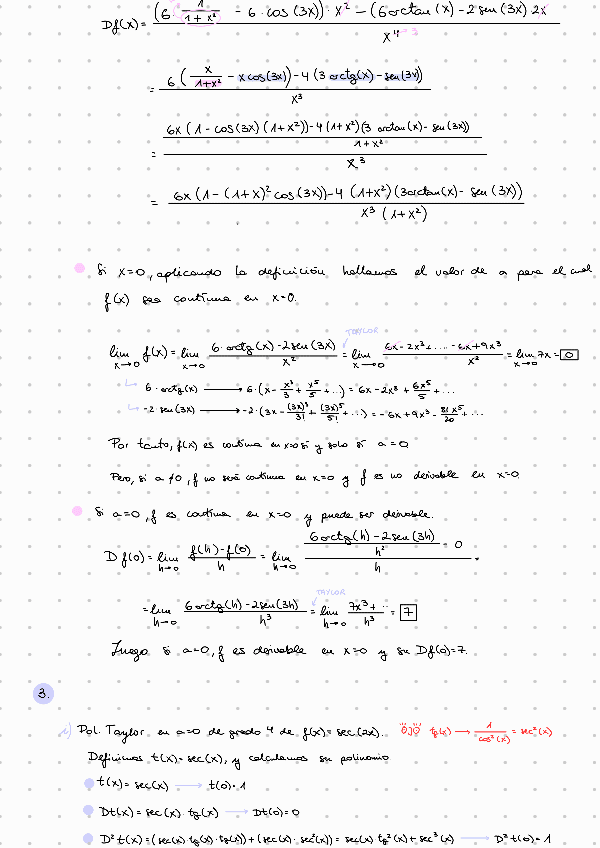 Df(x) = (6 · 1/(1+x²) - 6 · cos(3x)) · x² - (6 arctan(x) - 2 sen(3x) 2x / x⁴ → 3
= 6 (x/(1+x²) - x cos(3x)) - 4 (3 arctg(x) - sen(3x)) / x³
= 6x (1 - cos(3x) (1+x²)) - 4 (1+x²)(3 arctan(x) - sen(3x)) / 1+x² / x³
= 6x (1 - (1+x)² cos(3x)) - 4 (1+x²)(3arctan(x) - sen(3x)) / x³ (1+x²)
Si x=0, aplicando la definición hallamos el valor de a para el cual
f(x) sea continua en x=0.
TAYLOR
lim x→0 f(x) = lim x→0 6·arctg(x) - 2sen(3x) / x² = lim x→0 6x - 2x³ + ... - 6x + 9x³ / x² = lim x→0 7x = 0
↳ 6·arctg(x) → 6·(x - x³/3 + x⁵/5 + ...) = 6x - 2x³ + 6x⁵/5 + ...
↳ -2·sen(3x) → -2·(3x - (3x)³/3! + (3x)⁵/5! + ...) = -6x + 9x³ - 81x⁵/20 + ...
Por tanto, f(x) es continua en x=0 si y solo si a=0
Pero, si a≠0, f no será continua en x=0 y f es no derivable en x=0.
Si a=0, f es continua en x=0 y puede ser derivable.
Df(0) = lim h→0 f(h) - f(0) / h = lim h→0 6arctg(h) - 2sen(3h) / h² - 0 / h =
TAYLOR
= lim h→0 6arctg(h) - 2sen(3h) / h³ = lim h→0 7x³ + ... / h³ = 7
Luego si a=0, f es derivable en x=0 y su Df(0)=7.
3.
i) Pol. Taylor en a=0 de grado 4 de f(x) = sec(2x). OJO tg(x) → 1/cos²(x) = sec²(x)
Definimos t(x) = sec(x), y calculamos su polinomio
t(x) = sec(x) → t(0) = 1
Dt(x) = sec(x) · tg(x) → Dt(0) = 0
D²t(x) = (sec(x) tg(x) · tg(x)) + (sec(x) · sec²(x)) = sec(x) tg²(x) + sec³(x) → D²t(0) = 1